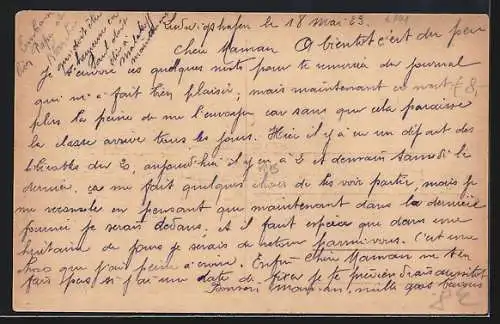 Ludwigshafen le 18 Mai 23.
Chère Maman A bientôt c'est du peu
Je t'envoie ces quelques mots pour te remercier du journal
qui m'a fait bien plaisir, mais maintenant ce n'est
plus la peine de me l'envoyer car sans que cela paraisse
la classe arrive tous les jours. Hier il y a eu un départ des
libérables du 2, aujourd'hui il y en a 2 et demain samedi le
dernier, ça me fait quelques chose de les voir partir, mais je
me console en pensant que maintenant dans la dernière
fournée je serais dedans, et il faut espérer que dans une
huitaine de jours je serais de retour parmi vous. C'est une
chose que j'ait peine à croire. Enfin Chère Maman ne t'en
fais pas si j'ai une date de fixer je te préviendrais aussitôt
Bonsoir maman, mille gros baisers